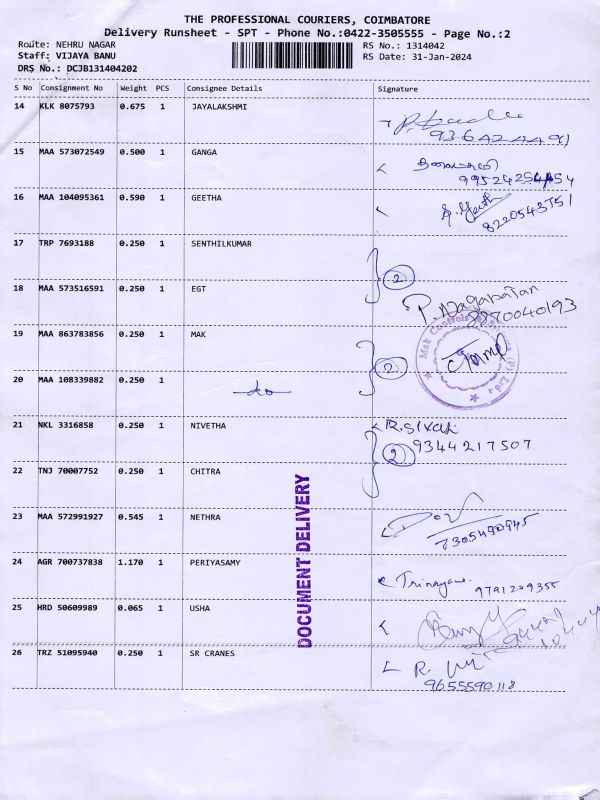 THE PROFESSIONAL COURIERS, COIMBATORE
Delivery Runsheet - SPT - Phone No.:0422-3505555 - Page No.:2
Route: NEHRU NAGAR RS No.: 1314042
Staff: VIJAYA BANU RS Date: 31-Jan-2024
DRS No.: DCJB131404202
S No Consignment No Weight PCS Consignee Details Signature
14 KLK 8075793 0.675 1 JAYALAKSHMI
15 MAA 573072549 0.500 1 GANGA
16 MAA 104095361 0.590 1 GEETHA
8220543751
17 TRP 7693188 0.250 1 SENTHILKUMAR
2
18 MAA 573516591 0.250 1 EGT
P. Nagarajan
8870040193
19 MAA 863783856 0.250 1 MAK
2
20 MAA 108339882 0.250 1 do
21 NKL 3316858 0.250 1 NIVETHA R.SIVAH
9344217507
2
22 TNJ 70007752 0.250 1 CHITRA
23 MAA 572991927 0.545 1 NETHRA
7305490945
24 AGR 700737838 1.170 1 PERIYASAMY
9791209355
25 HRD 50609989 0.065 1 USHA
26 TRZ 51095940 0.250 1 SR CRANES
9655590118
DOCUMENT DELIVERY